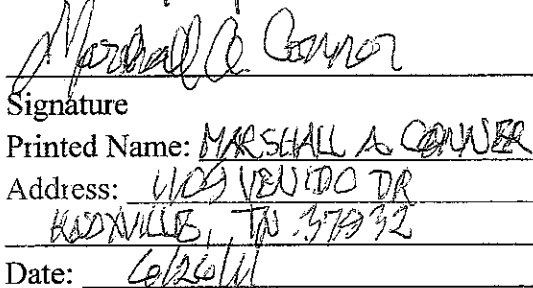 Marshall A. Conner
Signature
Printed Name: MARSHALL A. CONNER
Address: 1109 VENIDO DR
KNOXVILLE, TN 37932
Date: 6/26/11